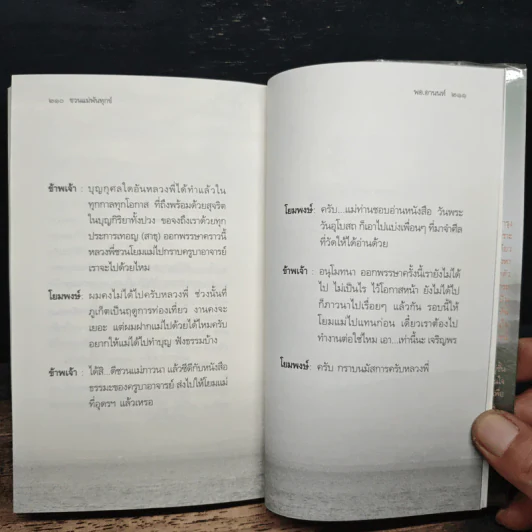 ๒๑๐ ชวนแม่พ้นทุกข์
ข้าพเจ้า : บุญกุศลใดอันหลวงพี่ได้ทำแล้วใน
ทุกกาลทุกโอกาส ที่ถึงพร้อมด้วยสุจริต
ในบุญกิริยาทั้งปวง ขอจงถึงเราด้วยทุก
ประการเทอญ (สาธุ) ออกพรรษาคราวนี้
หลวงพี่ชวนโยมแม่ไปกราบครูบาอาจารย์
เราจะไปด้วยไหม
โยมพงษ์: ผมคงไม่ได้ไปครับหลวงพี่ ช่วงนั้นที่
ภูเก็ตเป็นฤดูการท่องเที่ยว งานคงจะ
เยอะ แต่ผมฝากแม่ไปด้วยได้ไหมครับ
อยากให้แม่ได้ไปทำบุญ ฟังธรรมบ้าง
ข้าพเจ้า : ได้สิ..ดีชวนแม่ภาวนา แล้วซีดีกับหนังสือ
ธรรมะของครูบาอาจารย์ ส่งไปให้โยมแม่
ที่อุดรฯ แล้วเหรอ
พล.อานนท์ ๒๑๑
โยมพงษ์: ครับ...แม่ท่านชอบอ่านหนังสือ วันพระ
วันอุโบสถ ก็เอาไปแบ่งเพื่อนๆ ที่มาจำศีล
ที่วัดให้ได้อ่านด้วย
ข้าพเจ้า : อนุโมทนา ออกพรรษาครั้งนี้เรายังไม่ได้
ไป ไม่เป็นไร ไว้โอกาสหน้า ยังไม่ได้ไป
ก็ภาวนาไปเรื่อยๆ แล้วกัน รอบนี้ให้
โยมแม่ไปแทนก่อน เดี๋ยวเราต้องไป
ทำงานต่อใช่ไหม เอา...เท่านี้นะ เจริญพร
โยมพงษ์: ครับ กราบนมัสการครับหลวงพี่